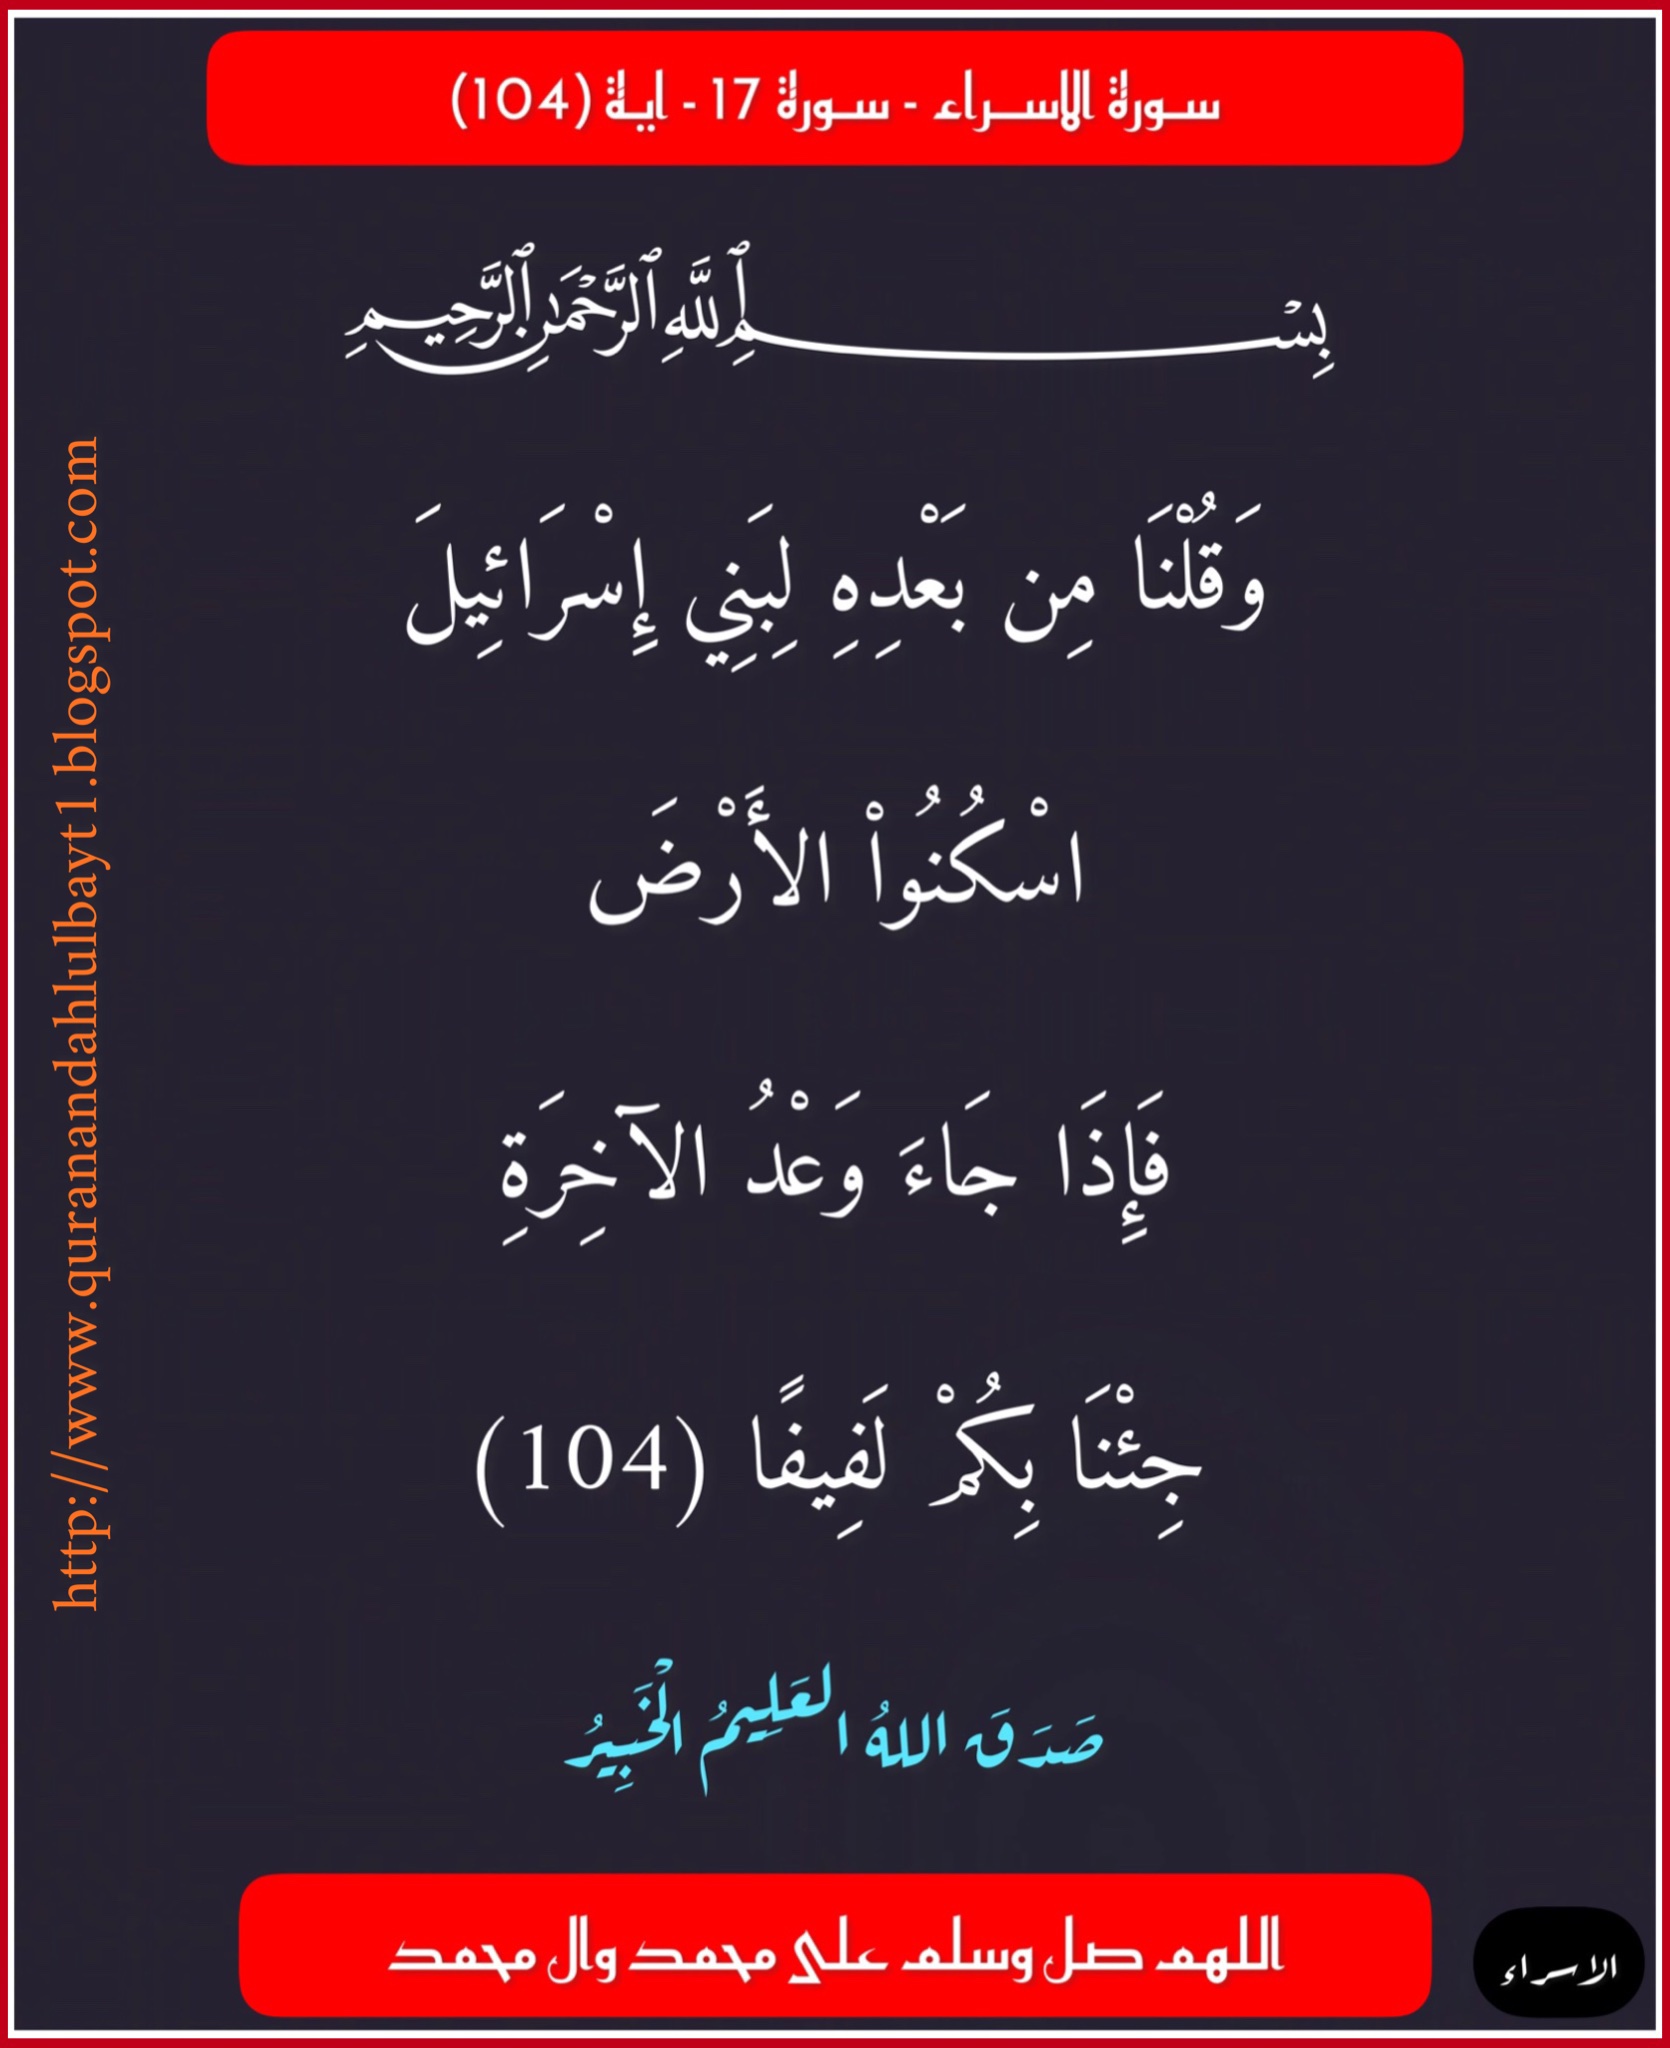 سورة الاسراء - سورة 17 - اية (104)
بِسْمِ ٱللَّهِ ٱلرَّحْمَٰنِ ٱلرَّحِيمِ
وَقُلْنَا مِن بَعْدِهِ لِبَنِي إِسْرَائِيلَ
اسْكُنُواْ الأَرْضَ
فَإِذَا جَاءَ وَعْدُ الآخِرَةِ
جِئْنَا بِكُمْ لَفِيفًا (104)
صَدَقَ اللهُ العَلِيمُ الْخَبِيرُ
اللهم صل وسلم على محمد وال محمد
الاسراء
http://www.quranandahlulbayt1.blogspot.com